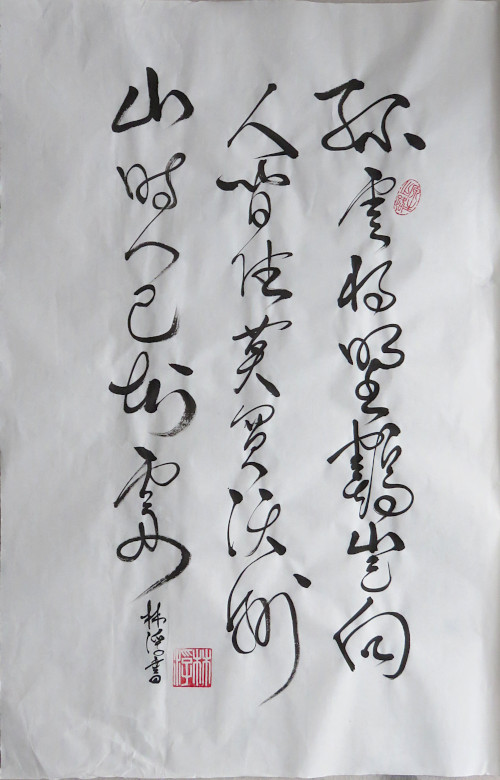 孤雲將野鶴豈向
人間住莫買沃洲
山時人已知處
林 書
林